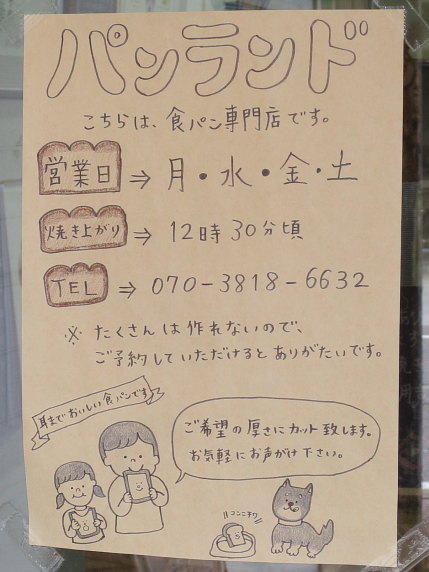 パンランド
こちらは、食パン専門店です。
営業日 ⇒ 月・水・金・土
焼き上がり ⇒ 12時30分頃
TEL ⇒ 070-3818-6632
※ たくさんは作れないので、
ご予約していただけるとありがたいです。
耳までおいしい食パンです
ご希望の厚さにカット致します。
お気軽にお声がけ下さい。
コンニチワ